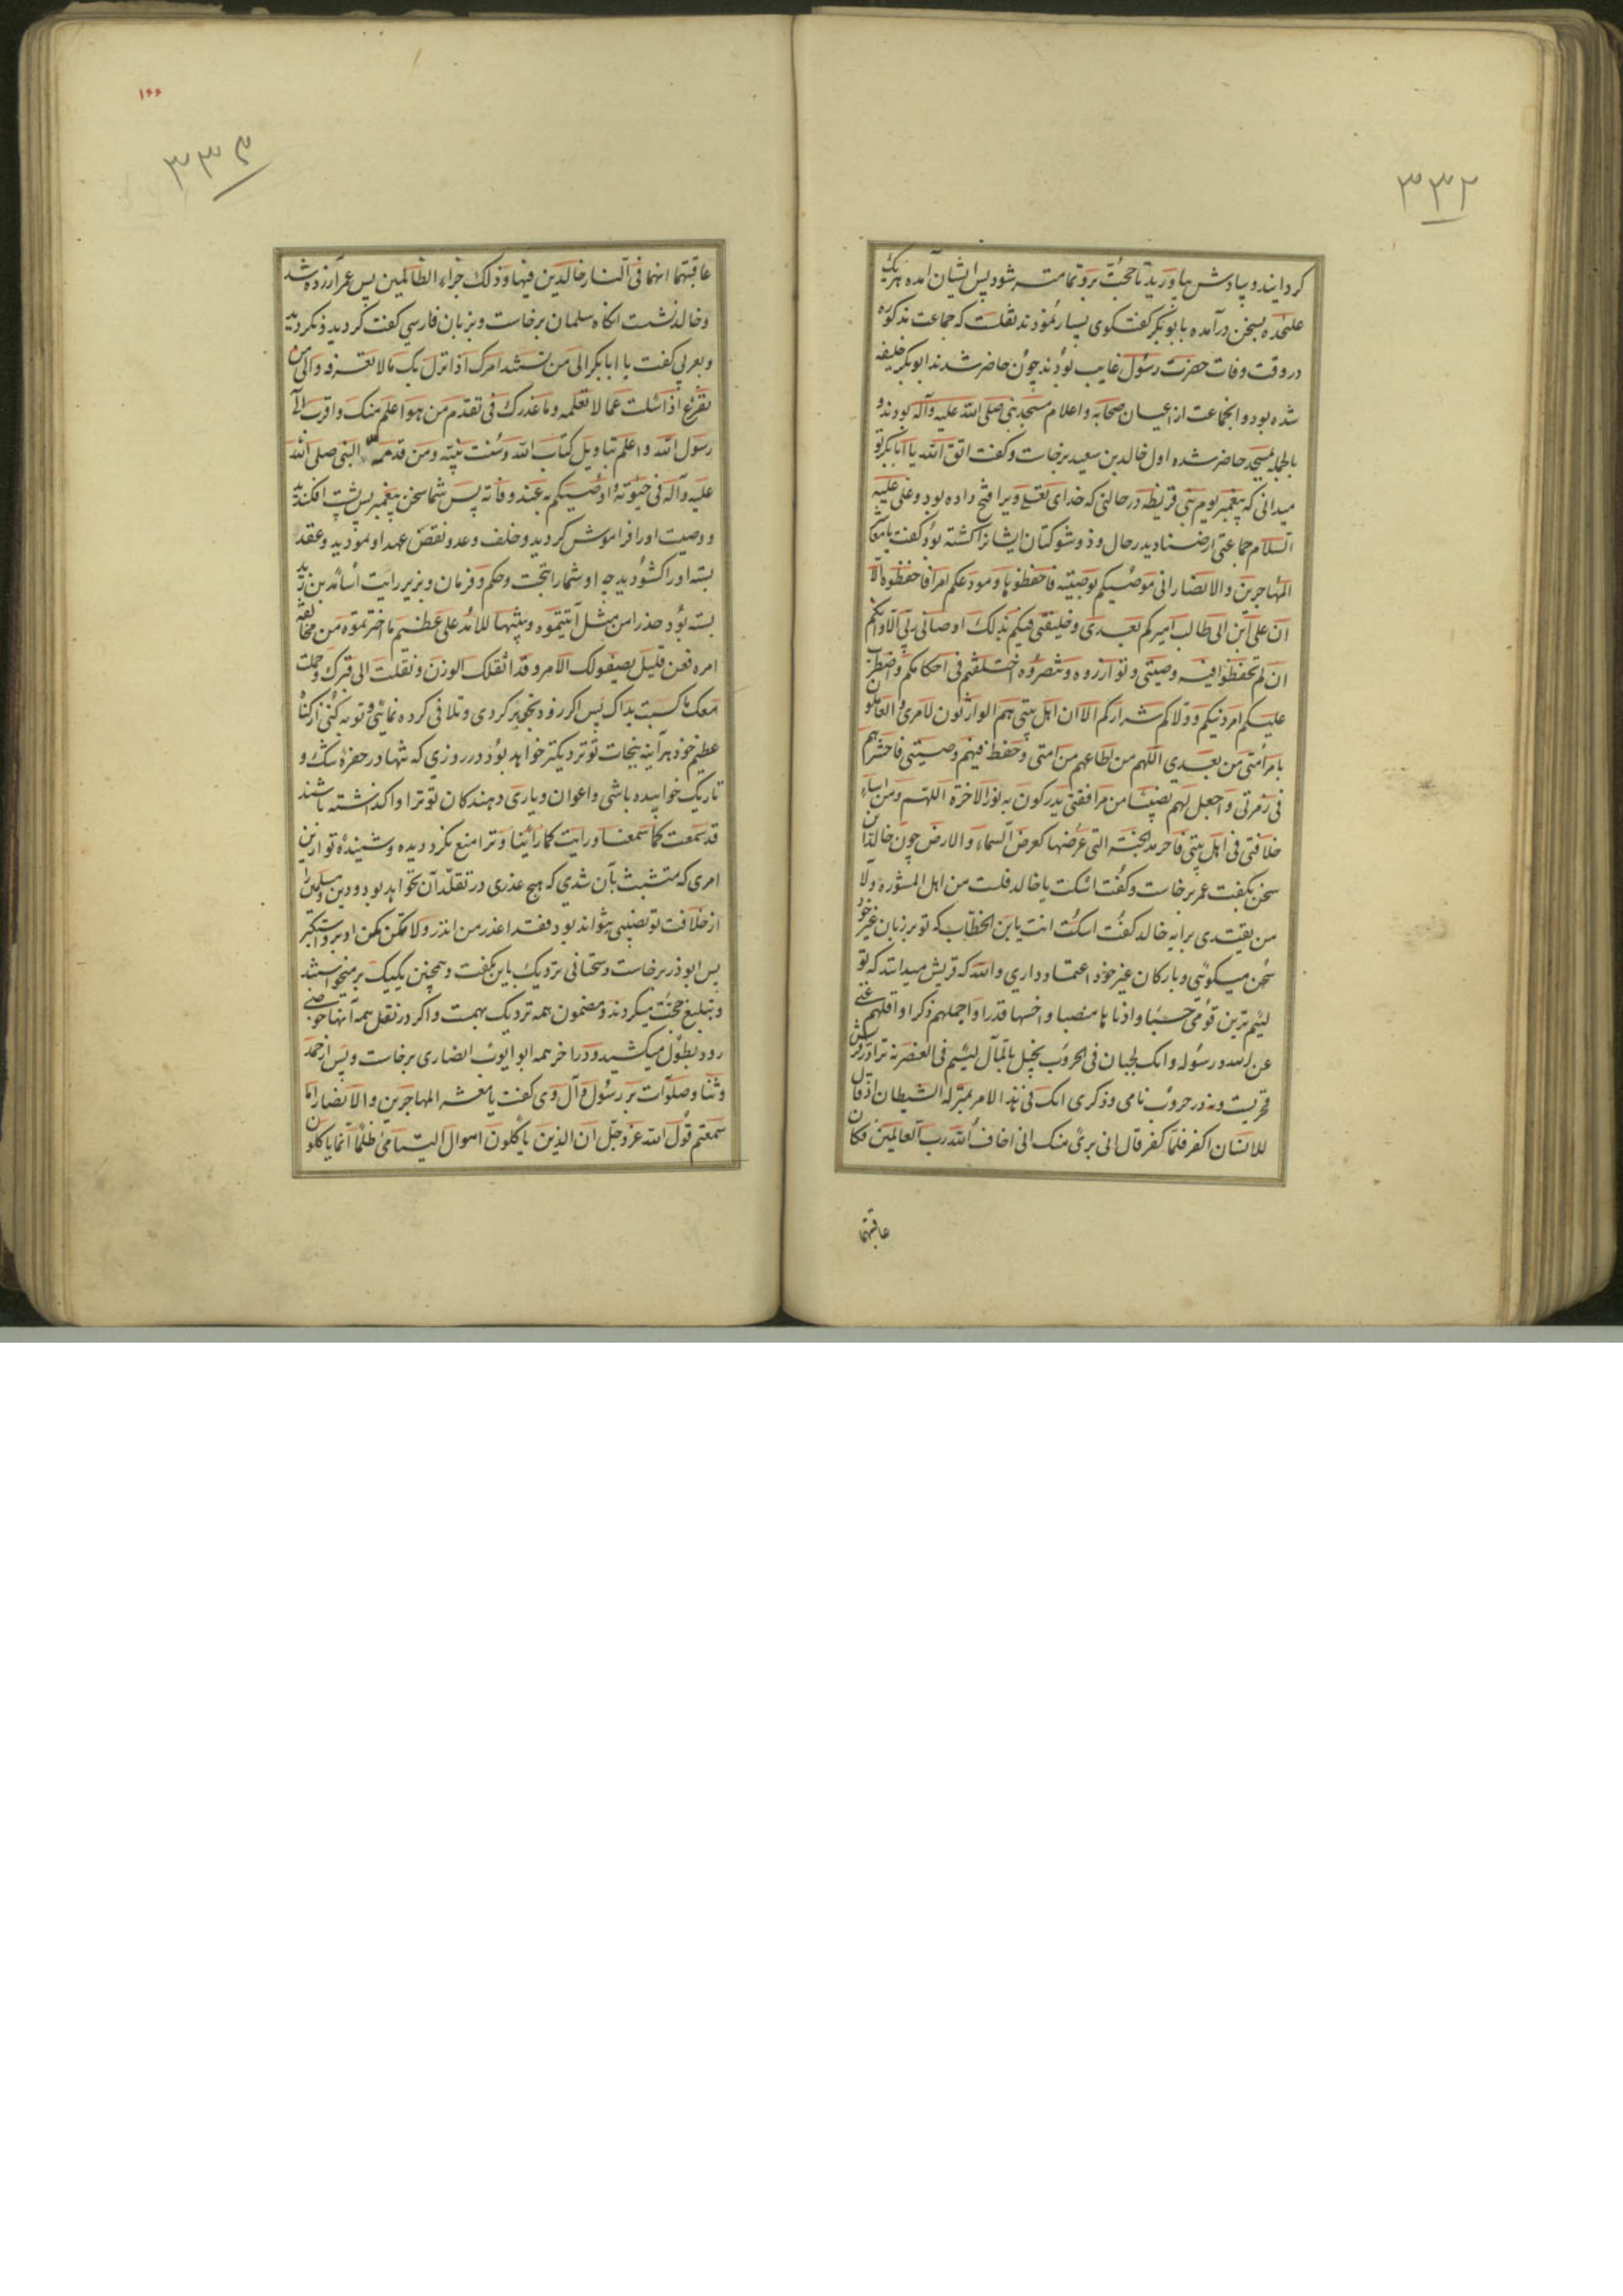 ۳۳۲
کردانیند و بیادش بیاورید تا حجت برو تمامتر شود پس ایشان آمده هر یک
علیحده بسخن درآمده با ابوبکر گفت کوی بسیار نمودند نقلست که جماعت مذکوره
در وقت وفات حضرت رسول غایب بودند چون حاضر شدند ابوبکر خلیفه
شده بود و انجماعت از اعیان صحابه و اعلام مسجد نبی صلی الله علیه وآله بودند و
بالجمله بمسجد حاضر شده اول خالد بن سعید برخاست و کفت اتق الله یا ابابکر تو
میدانی که پیغمبر یوم بنی قریظه در حالتی که خدای تعالی ویرا فتح داده بود و علی علیه
السلام جماعتی از صنادید رجال و ذو شوکتان ایشانرا کشته بود کفت یا معاشر
المهاجرین والانصار انی موصیکم بوصیته فاحفظوها و مودعکم امرا فاحفظوه الا
ان علی ابن ابی طالب امیرکم بعدی و خلیفتی فیکم بذلک اوصانی ربی الا وانکم
ان لم تحفظوا فیه وصیتی و توازروه و تنصروه اختلفتم فی احکامکم واضطرب
علیکم امر دینکم و ولاکم شرارکم الا ان اهل بیتی هم الوارثون لامری و العاملون
بامر امتی من بعدی اللهم من اطاعهم من امتی و حفظ فیهم وصیتی فاحشرهم
فی زمرتی و اجعل لهم نصیبا من مرافقتی یدرکون به نور الاخرة اللهم ومن اساء
خلافتی فی اهل بیتی فاحرمه الجنته التی عرضها کعرض السماء والارض چون خالد این
سخن بکفت عمر برخاست و کفت اسکت یا خالد فلست من اهل المشورة ولا
من یقتدی برایه خالد کفت اسکت انت یابن الخطاب که تو بر زبان غیر خود
سخن میکوئی و بارکان غیر خود اعتماد داری والله که قریش میدانند که تو
لئیم ترین قومی حسبا و ادناها منصبا و اخسها قدرا و اجملهم ذکرا و اقلهم غنی
عن الله و رسوله و انک لجبان فی الحروب بخیل بالمال لئیم فی العنصر نه ترا در قریش
فخریست و نه در حروب نامی و ذکری انک فی هذا الامر بمنزلة الشیطان اذ قال
للانسان اکفر فلما کفر قال انی بری منک انی اخاف الله رب العالمین فکان
عاقبتهما
۱۶۶
۳۳۳
عاقبتهما انهما فی النار خالدین فیها و ذلک جزاء الظالمین پس عمر آزرده شد
و خالد نشست انکاه سلمان برخاست و بزبان فارسی کفت کردید و نکردید
و بعربی کفت یا ابابکر الی من تسند امرک اذا نزل بک مالا تعرفه و الی من
تفزع اذا سئلت عما لا تعلمه و ما عذرک فی تقدم من هو اعلم منک و اقرب الی
رسول الله و اعلم بتاویل کتاب الله و سنت نبیه و من قدمه النبی صلی الله
علیه وآله فی حیوته و اوصیکم به عند وفاته پس شما سخن پیغمبر پس پشت افکندید
و وصیت او را فراموش کردید و خلف وعد و نقض عهد او نمودید و عقد
بسته او را کشودید چه او شما را بتحت و حکم و فرمان و بزیر رایت اسامه بن زید
بسته بود حذرا من مثل ما اتیتموه و تنبیها للامه علی عظیم ما اخترتموه من مخالفة
امره فعن قلیل یصفو لک الامر و قد اثقلک الوزر و نقلت الی قبرک و حملت
معک ما کسبت یداک پس اکر زود بخود بر کردی و تلافی کرده نمائی و توبه کنی از کناه
عظیم خود هر آینه بنجات تو نزدیکتر خواهد بود در روزی که تنها در حفرهٔ تنک و
تاریک خوابیده باشی و اعوان و یاری دهندکان تو ترا واکذاشته باشند
قد سمعت کما سمعنا و رایت کما رائینا و ترا منع نکرد دیده و شنیدهٔ تو ازین
امری که متشبث بآن شدی که هیچ عذری در تقلد آن نخواهد بود و دین و مسلمین را
از خلافت تو نصیبی نتواند بود فقد اعذر من انذر ولا تکن کمن ادبر واستکبر
پس ابوذر برخاست و سخنانی نزدیک باین بکفت و همچنین یکیک برمیخواستند
و بتبلیغ حجت میکردند و مضمون همه نزدیک بهمست و اکر در نقل همه آنها خوضی
رود بطول میکشید و در آخر همه ابو ایوب انصاری برخاست و پس از حمد
و ثنا و صلوات بر رسول و آل وی کفت یا معشر المهاجرین والانصار اما
سمعتم قول الله عز وجل ان الذین یاکلون اموال الیتامی ظلما انما یاکلون